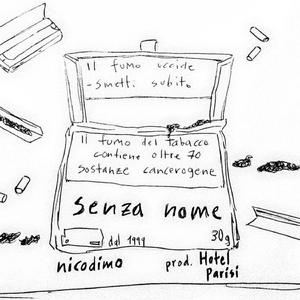 Il fumo uccide
- smetti subito
Il fumo del tabacco
contiene oltre 70
sostanze cancerogene
senza nome
dal 1999 30g
nicodimo prod. Hotel
Parisi